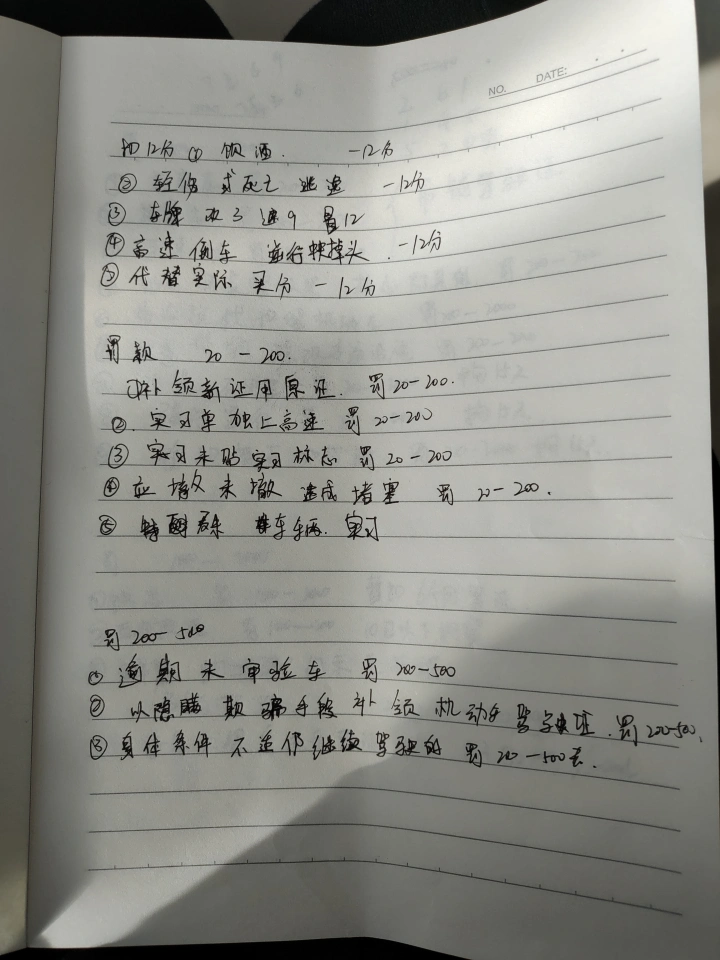 NO. DATE:
扣12分 ① 饮酒. -12分
② 轻伤 或死亡 逃逸 -12分
③ 车牌 次3 速9 最12
④ 高速 倒车 逆行 掉头. -12分
⑤ 代替实际 买分 -12分
罚款 20-200.
①补领新证用原证. 罚20-200.
②. 实习单独上高速 罚20-200
③ 实习未贴实习标志 罚20-200
④ 应撤未撤 造成堵塞 罚 20-200.
⑤ 车辆. 实习
罚200-500
① 逾期未审验车 罚200-500
② 以隐瞒 欺骗手段 补领 机动车 驾驶证. 罚200-500.
③ 身体条件 不适仍继续驾驶的 罚 200-500元.